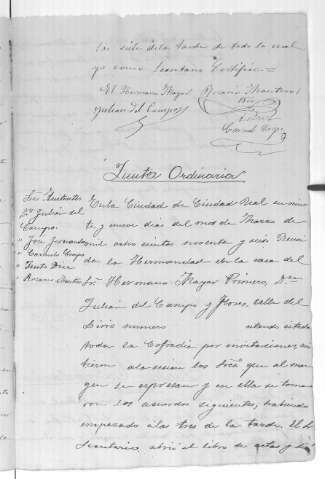 las siete de la tarde de todo lo cual
yo como Secretario Certifico =
El Hermano Mayor Rosario Montero
Julian del Campo
Carmelo Crespo
Junta Ordinaria
Sres. Asistentes
Dn. Julian del
Campo
" José Fernandez
" Carmelo Crespo
" Rosario Montero
En la Ciudad de Ciudad Real en vein
te y nueve dias del mes de Marzo de
mil ocho cientos noventa y seis Reuni
da la Hermandad en la casa del
Sr. Hermano Mayor Primero, Don
Julian del Campo y Flores, calle del
Lirio numero estando citada
toda la Cofradia por invitaciones, asis
tieron a la sesion los Sres. que al mar
gen se expresan y en ella se toma
ron los acuerdos siguientes, habiendo
empezado a las tres de la tarde, El
Secretario, abrió el libro de actas y